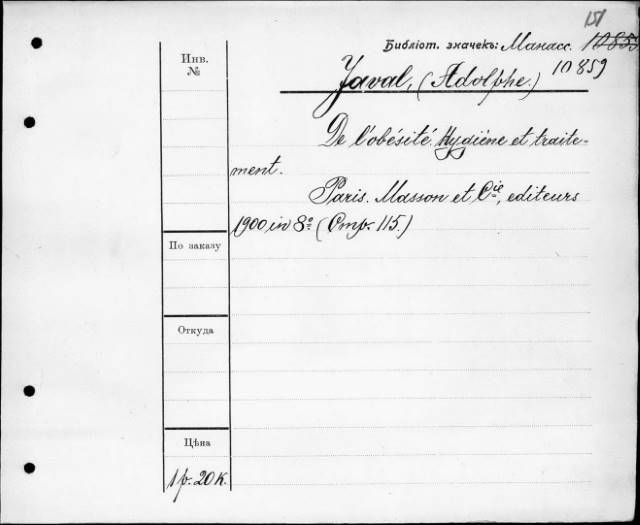 151
Библіот. значекъ: Манасс. 10859
Инв.
№
Javal, (Adolphe.) 10859
De l'obésité. Hygiène et traite-
ment.
Paris. Masson et Cie, editeurs
1900 in 8º (Стр. 115.)
По заказу
Откуда
Цѣна
1 р. 20 к.